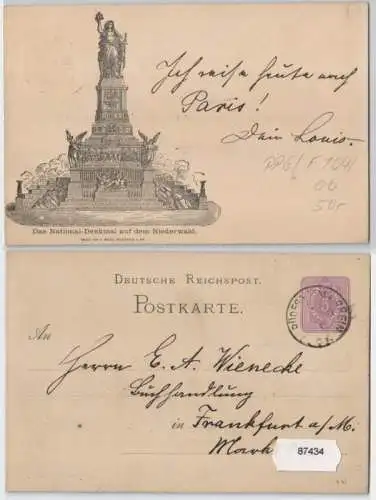 Ich reise heute nach
Paris!
Dein Louis.
Das National-Denkmal auf dem Niederwald.
DEUTSCHE REICHSPOST.
POSTKARTE.
An
Herrn E. A. Wienecke
Buchhandlung
in Frankfurt a/M.
87434